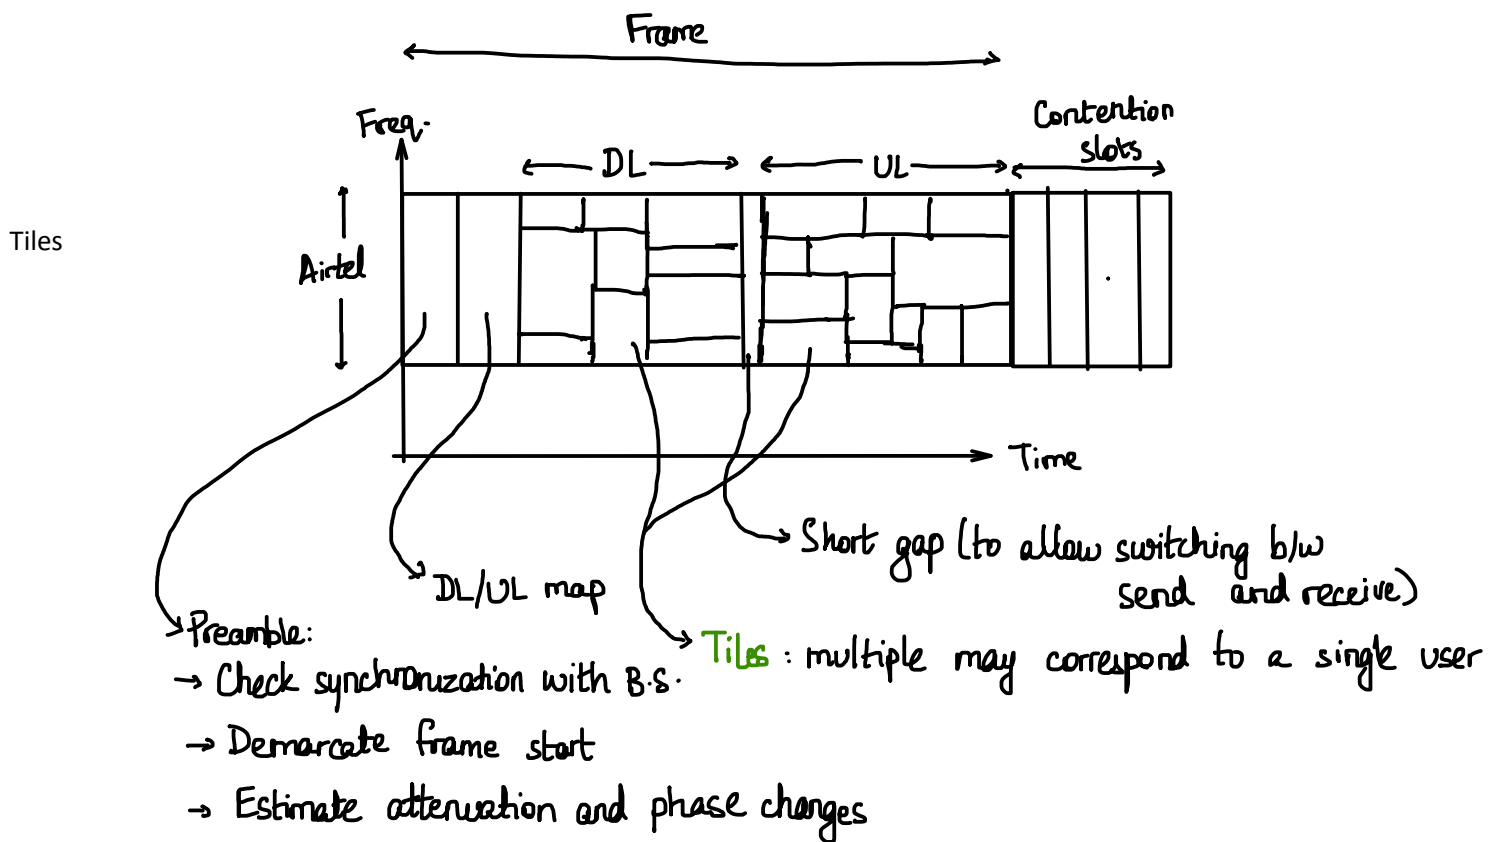 Frame
Freq.
Contention
slots
DL
UL
Tiles
Airtel
Time
Short gap (to allow switching b/w
send and receive)
DL/UL map
Preamble:
Tiles : multiple may correspond to a single user
→ Check synchronization with B.S.
→ Demarcate frame start
→ Estimate attenuation and phase changes